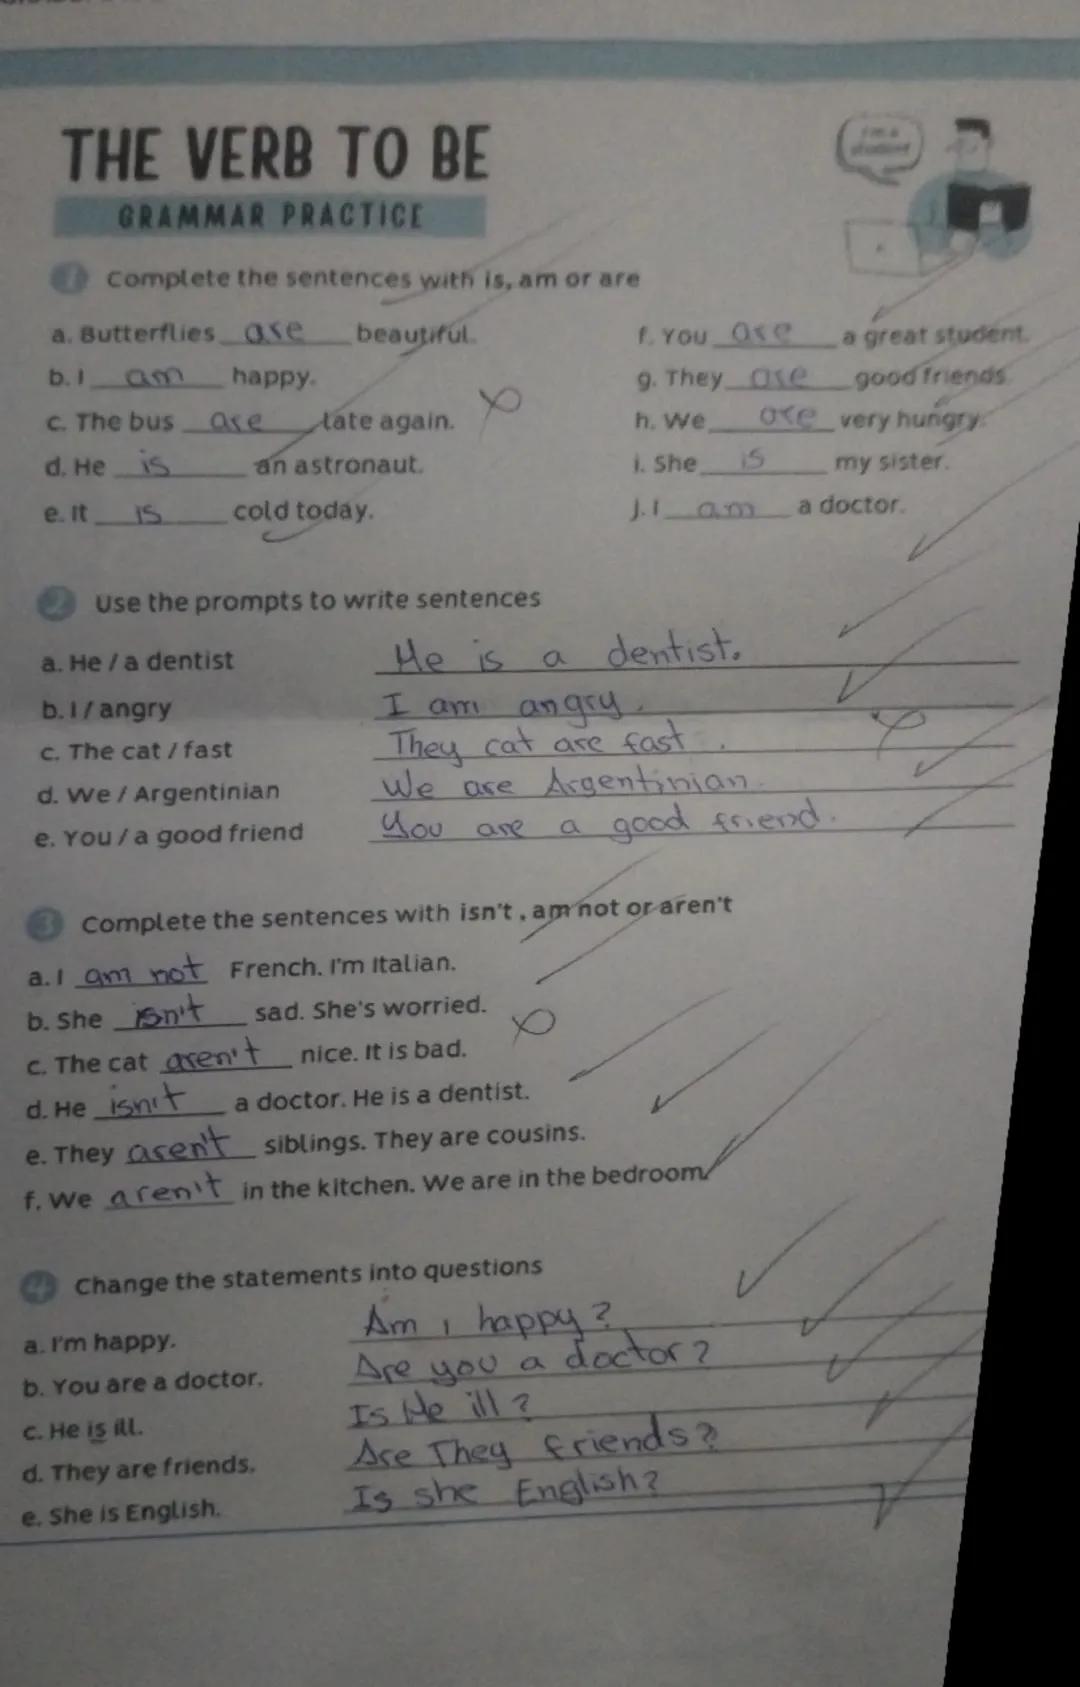 THE VERB TO BE
GRAMMAR PRACTICE
I'm a
student
1 Complete the sentences with is, am or are
a. Butterflies are beautiful.
b. I am happy.
c. The bus are late again.
d. He is an astronaut.
e. It is cold today.
f. You are a great student.
g. They are good friends.
h. We are very hungry.
i. She is my sister.
j. I am a doctor.
2 Use the prompts to write sentences
a. He / a dentist He is a dentist.
b. I / angry I am angry.
c. The cat / fast They cat are fast.
d. We / Argentinian We are Argentinian.
e. You / a good friend You are a good friend.
3 Complete the sentences with isn't, am not or aren't
a. I am not French. I'm Italian.
b. She isn't sad. She's worried.
c. The cat aren't nice. It is bad.
d. He isn't a doctor. He is a dentist.
e. They aren't siblings. They are cousins.
f. We aren't in the kitchen. We are in the bedroom
4 Change the statements into questions
a. I'm happy. Am I happy?
b. You are a doctor. Are you a doctor?
c. He is ill. Is He ill?
d. They are friends. Are They friends?
e. She is English. Is she English?